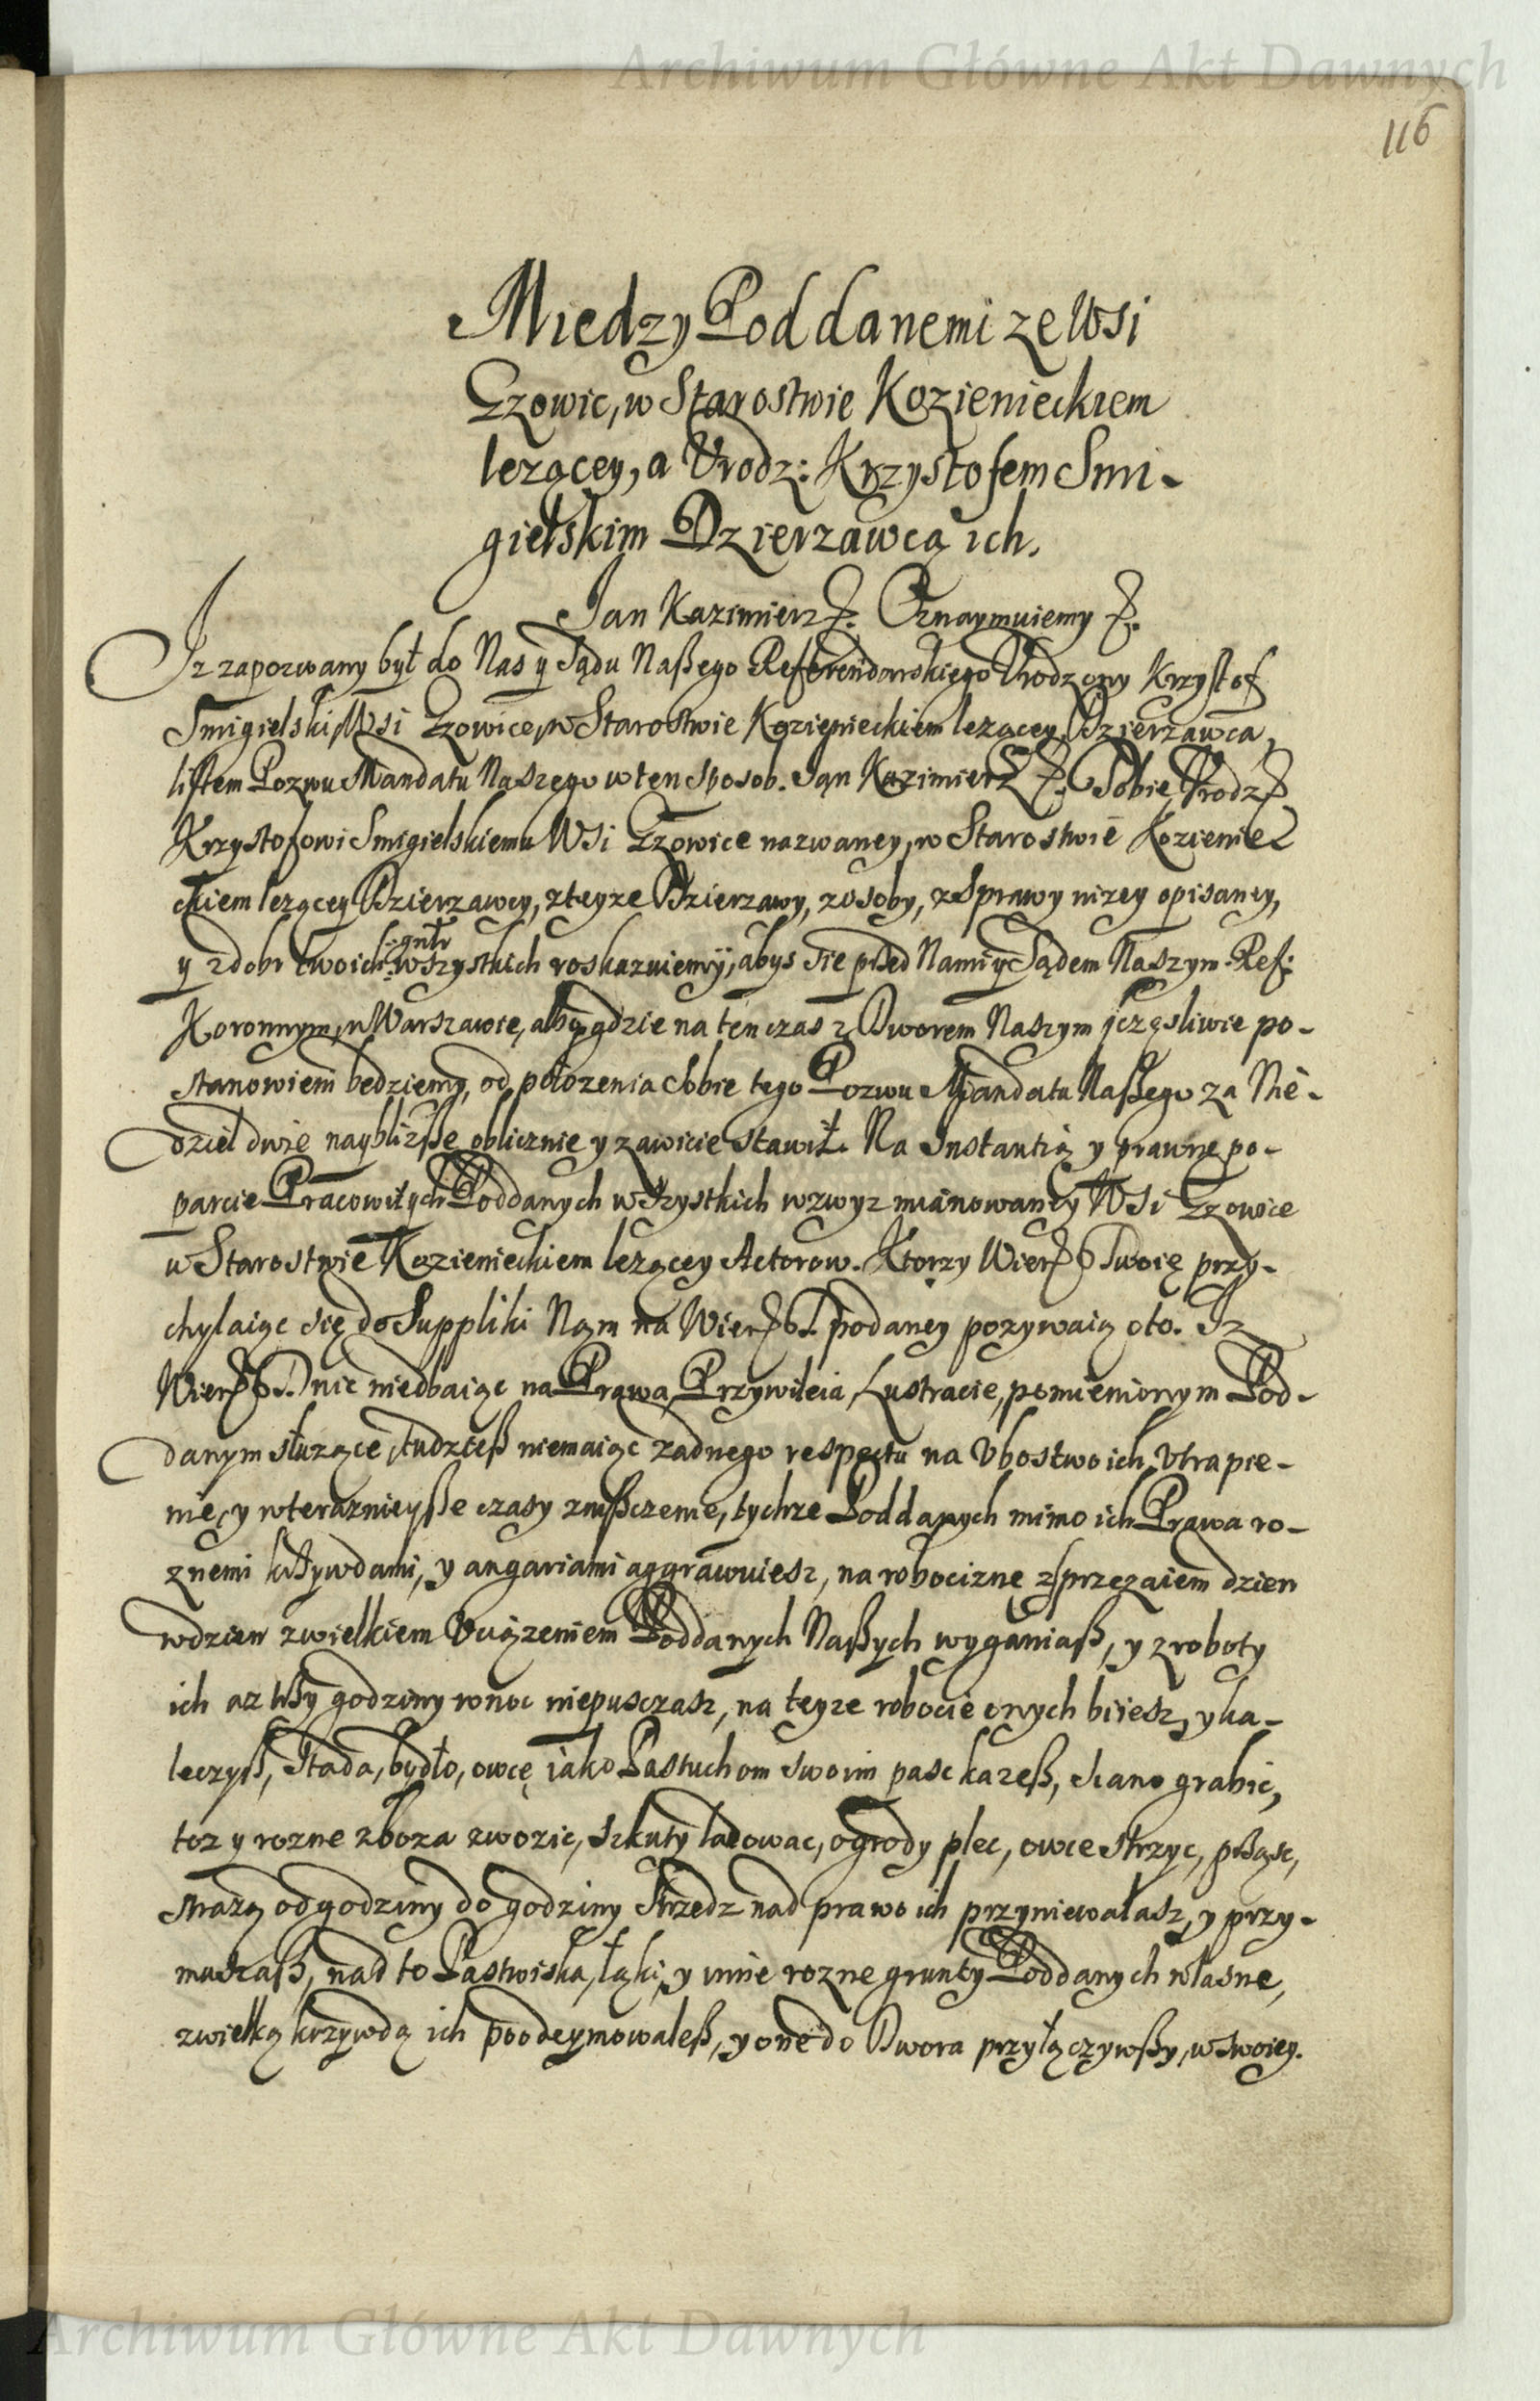 Archiwum Główne Akt Dawnych
116
Miedzy Poddanemi ze Wsi
Łzowic, w Starostwie Kozienieckiem
lezącey, a Vrodz: Krzystofem Smi-
gielskim Dzierzawcą ich.
Jan Kazimierz &. Oznaymuiemy &.
Jz zapozwany był do Nas y Sądu Naßego Referendarskiego Vrodzony Krzystof
Smigielski, Wsi Łzowice, w Starostwie Kozienieckiem lezącey Dzierzawca,
listem Pozwu Mandatu Naszego w ten sposob. Jan Kazimierz &. Tobie Vrodz&
Krzystofowi Smigielskiemu Wsi Łzowice nazwaney, w Starostwie Kozienie
ckiem lezącey Dzierzawcy, z teyze Dzierzawy, z osoby, z sprawy nizey opisaney,
y z dobr twoich wszystkich roskazuiemy, abys sie przed Nami y Sądem Naszym Ref:
Koronnym, w Warszawie, albo gdzie na ten czas z Dworem Naszym sczęsliwie po-
stanowieni bedziemy, od połozenia Sobie tego Pozwu Mandatu Naßego za Nie-
dziel dwie naybliżße oblicznie y zawicie stawił. Na Jnstantią y prawne po-
parcie Pracowitych Poddanych wszystkich wzwyz mianowaney Wsi Łzowice
w Starostwie Kozienieckiem lezącey Actorow. Ktorzy Wier& Twoię przy-
chylaiąc się do Suppliki Nam na Wier& T. podaney pozywaią oto. Jz
Wier& T. nic niedbaiąc na Prawa, Przywileia, Lustracie, pomienionym Pod-
danym słuzące, tudzieß niemaiąc zadnego respectu na Vbostwo ich, Vtrapie-
nie, y w teraznieyße czasy znißczenie, tychze Poddanych mimo ich Prawa ro-
znemi krzywdami, y angariami aggrawuiesz, na robociznę z sprzęzaiem dzien
w dzien z wielkiem Vciązeniem Poddanych Naßych wyganiaß, y z roboty
ich az trzy godziny w noc niepusczasz, na teyze robocie onych biiesz, y ka-
leczyß, Stada, bydło, owcę iako Pastuchom swoim pasc kazeß, Siano grabic,
toz y rozne zboza zwozic, szkuty ładowac, ogrody plec, owce strzyc, prząsc,
strazą od godziny do godziny strzedz nad prawo ich przyniewalasz, y przy-
muszaß, nad to Pastwiska, łąki, y inne rozne grunty Poddanych własne,
z wielką krzywdą ich poodeymowałeß, y one do Dwora przyłączywßy, w swoiey.
Archiwum Główne Akt Dawnych